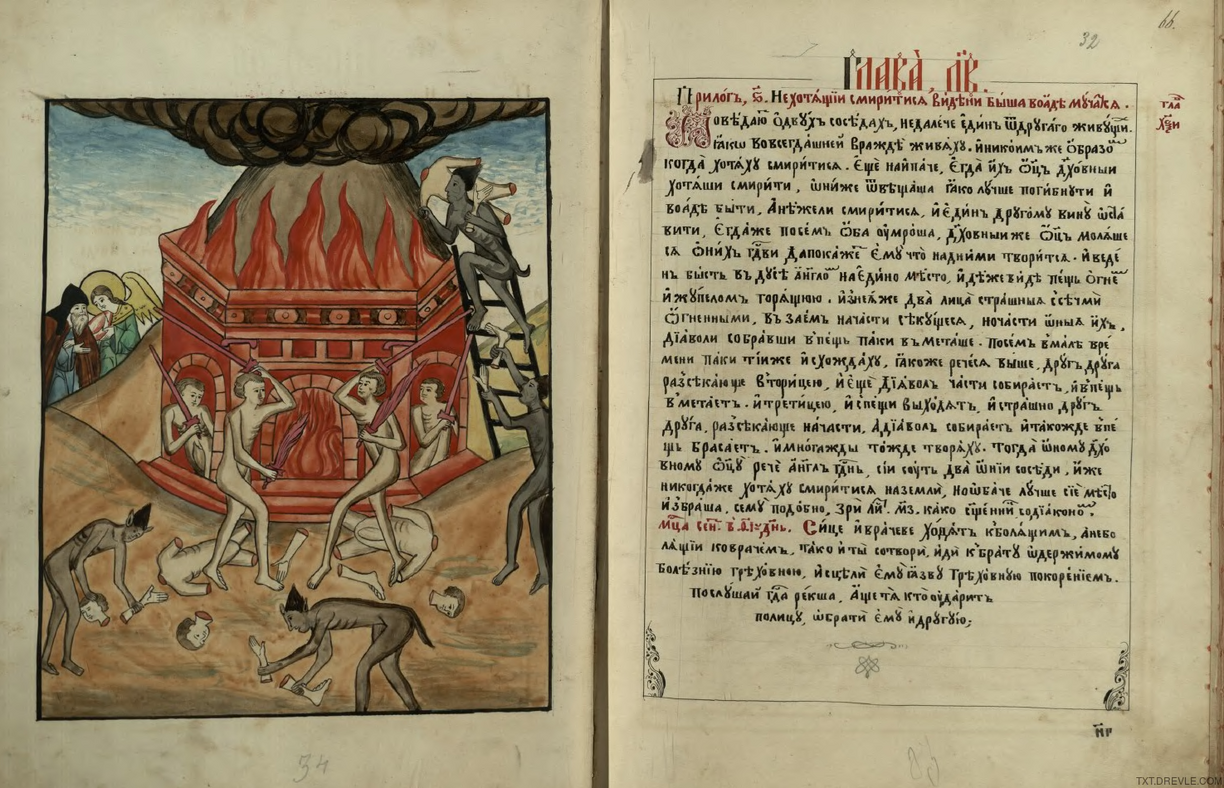 66.
32
Глава, лв.
Прилогъ, ѕ. Нехотѧщїи смиритисѧ видѣни быша воадѣ мѹчасѧ.
гла
Повѣдаю ѡдвухъ сосѣдахъ, недалече единъ ѿдругаго живущи.
ꙗкѡ вовсегдашней враждѣ живѧху. иникоимъже ѡбразо
когда хотѧху смиритисѧ. Еще найпаче, Егда ихъ ѿцъ дховныи
хотѧши смирити, ѡниже ѿвѣщаша ꙗко лучше погибнути и
воадѣ быти, Анѣжели смиритисѧ, и единъ другому вину ѡста
вити, Егдаже посемъ ѡба оумроша, дховныиже ѿцъ молѧше
сѧ ѡнихъ гдви дапокаже ему что надними творитсѧ. и веде
нъ бысть въ дусѣ англо на едино мѣсто, идѣже видѣ пещь ѡгне
и жупеломъ горѧщюю. изнеѧже два лица страшныѧ ссѣчми
ѡгненными, въ заемъ начасти сѣкущесѧ, ночасти ѡныѧ ихъ,
дїаволи собравши впещь паки въметаше. посемъ вмалѣ вре
мени паки тїиже исхождаху, ꙗкоже речесѧ выше, другъ друга
разсѣкающе вторицею, и еще дїаволъ части собираетъ, ивпещь
вметаетъ. и третицею, испещи выходѧтъ, и страшно другъ
друга, разсѣкающе начасти, адїаволъ собираетъ итакожде впе
щь брасаетъ. имногажды тожде творѧху. тогда ѡному дхо
вному ѿцу рече англъ гднь, сїи соуть два ѡнїи сосѣди, иже
никогдаже хотѧху смиритисѧ наземли, ноѡбаче лучше сїе мѣсто
избраша, сему подобно, зри лй. мз. како сщеннй содїаконо.
мца сен. Сице иврачеве ходѧтъ кболѧщимъ, анебо
лѧщїи коврачемъ, тако иты сотвори, иди кбрату ѡдержимому
болѣзнїю грѣховною, исцѣли ему ꙗзву грѣховную покоренїемъ.
послушай гда рекша, Аще тѧ кто оударитъ
полицу, ѡбрати ему идругую;
нг
34
TXT.DREVLE.COM